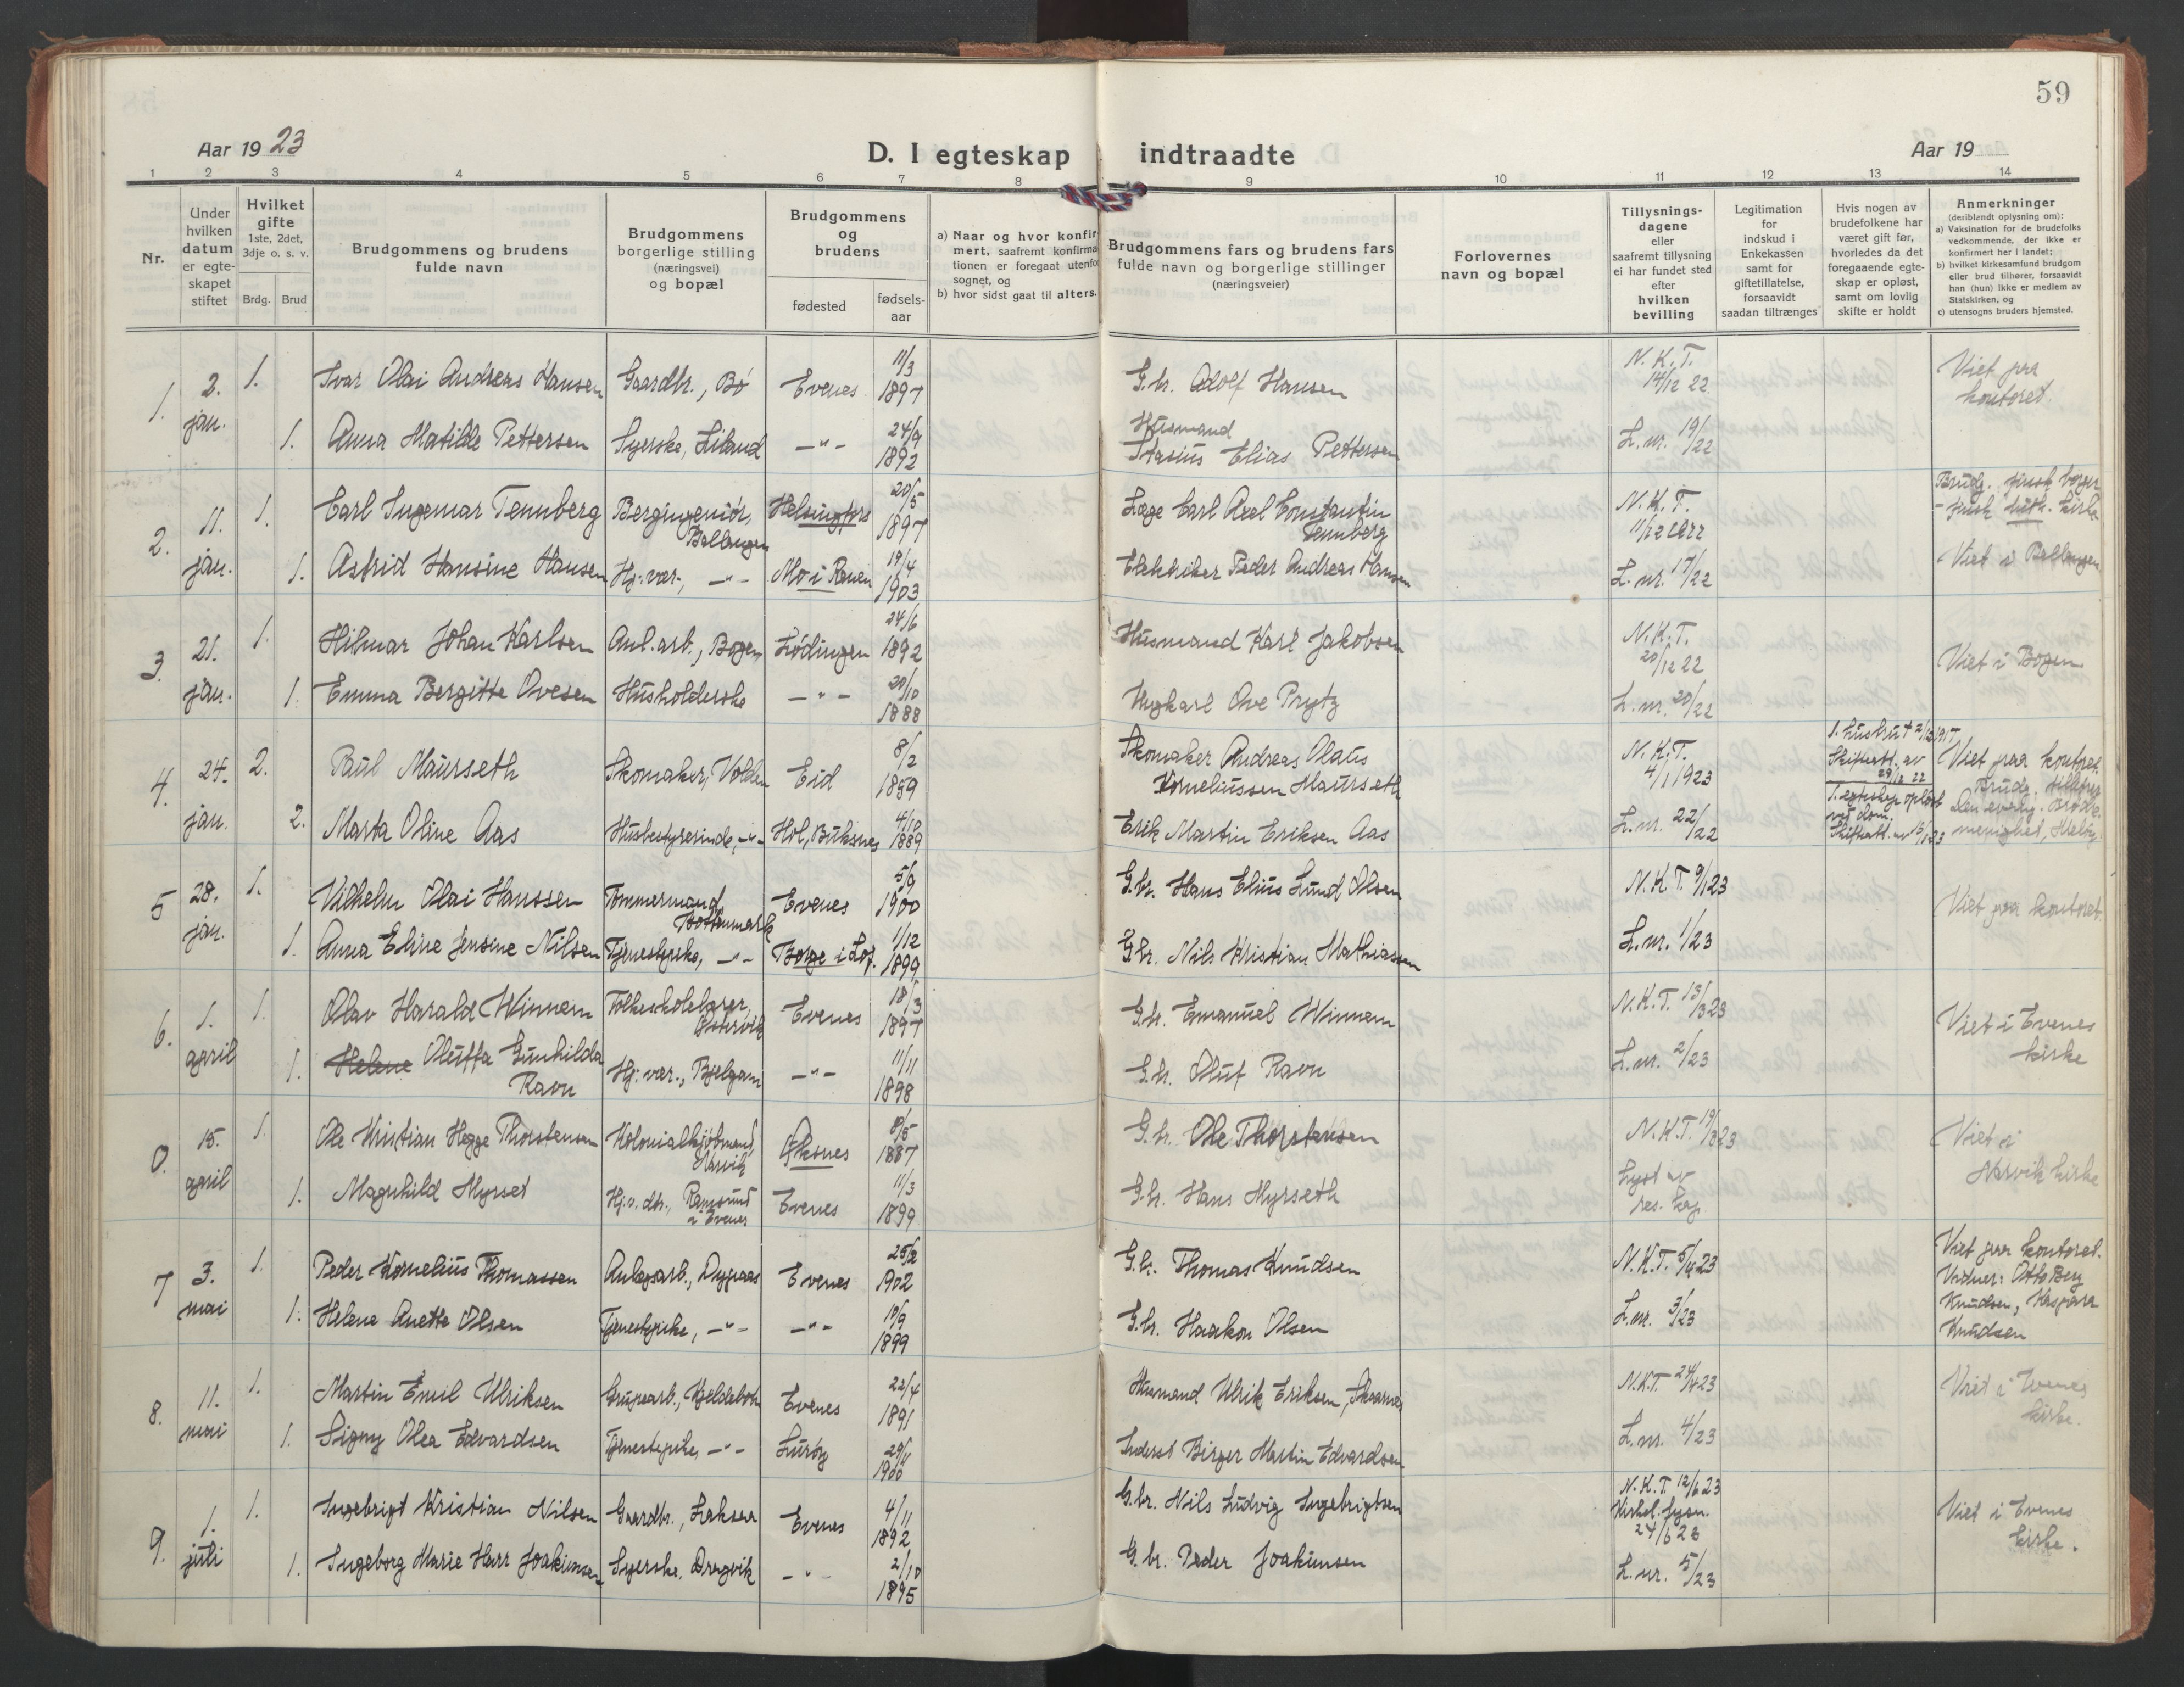 59
Aar 1923
D. I egteskap indtraadte
Aar 19
1 2 3 4 5 6 7 8 9 10 11 12 13 14
Nr.
Under
hvilken
datum
er egte-
skapet
stiftet
Hvilket
gifte
1ste, 2det,
3dje o. s. v.
Brdg. Brud
Brudgommens og brudens
fulde navn
Brudgommens
borgerlige stilling
(næringsvei)
og bopæl
Brudgommens
og
brudens
fødested
fødsels-
aar
a) Naar og hvor konfir
mert, saafremt konfirma
tionen er foregaat utenfo
sognet, og
b) hvor sidst gaat til alters.
Brudgommens fars og brudens fars
fulde navn og borgerlige stillinger
(næringsveier)
Forlovernes
navn og bopæl
Tillysnings-
dagene
eller
saafremt tillysning
ei har fundet sted
efter
hvilken
bevilling
Legitimation
for
indskud i
Enkekassen
samt for
giftetillatelse,
forsaavidt
saadan tiltrænges
Hvis nogen av
brudefolkene har
været gift før,
hvorledes da det
foregaaende egte-
skap er opløst,
samt om lovlig
skifte er holdt
Anmerkninger
(deriblandt oplysning om):
a) Vaksination for de brudefolks
vedkommende, der ikke er
konfirmert her i landet;
b) hvilket kirkesamfund brudgom
eller brud tilhører, forsaavidt
han (hun) ikke er medlem av
Statskirken, og
c) utensogns bruders hjemsted.
1. 2. jan. 1. Ivar Olai Andreas Hansen Gaardbr., Bø Evenes 11/3 1897 G.br. Adolf Hansen N.K.T. 14/12 22 Viet paa kontoret.
1. Anna Matilde Pettersen Syerske, Liland -"- 24/9 1892 Husmand Stasius Elias Pettersen L.nr. 19/22
2. 11. jan. 1. Carl Ingemar Tennberg Bergingeniør, Ballangen Helsingfors 20/5 1897 Læge Carl Axel Constantin Tennberg N.K.T. 11/12 1922 Brudg. finsk borger - finsk luth. kirke
1. Astrid Hansine Hansen Hj.vær., -"- Mo i Ranen 19/4 1903 Elektriker Peder Andreas Hansen L.nr. 17/22 Viet i Ballangen
3. 21. jan. 1. Hilmar Johan Karlsen Anl.arb., Bogen Lødingen 24/6 1892 Husmand Karl Jakobsen N.K.T. 20/12 22 Viet i Bogen
1. Emma Bergitte Ovesen Husholderske -"- 20/10 1888 Ungkarl Ove Prytz L.nr. 20/22
4. 24. jan. 2. Paul Maurseth Skomaker, Volden Eid 8/2 1859 Skomaker Andreas Olaus Korneliussen Maurseth N.K.T. 4/1 1923 1. hustru † 2/12 1917 Skifteatt. av 29/12 22 Viet paa kontoret.
2. Marta Oline Aas Husbestyrerinde, -"- Hol, Buksnes 4/10 1889 Erik Martin Eriksen Aas L.nr. 22/22 1. egteskap opløst ved dom. Skifteatt. av 15/1 23 Brudg. tilhører Den evang. Brødremenighet,
5 28. jan. 1. Vilhelm Olai Hanssen Tømmermand, Bottenmark Evenes 5/9 1900 G.br. Hans Elius Lund Olsen N.K.T. 9/1 23 Viet paa kontoret.
1. Anna Eline Jensine Nilsen Tjenestepike, -"- Borge i Lof. 1/12 1899 G.br. Nils Kristian Mathiassen L.nr. 1/23
6. 1. april 1. Olav Harald Winnem Folkeskolelærer, Østervik Evenes 18/3 1897 G.br. Emanuel Winnem N.K.T. 13/3 23 Viet i Evenes kirke
1. Helene Oluffa Gunhilda Ravn Hj.vær., Bjelgam -"- 11/11 1898 G.br. Oluf Ravn L.nr. 2/23
0. 15. april 1. Ole Kristian Hegge Thorstensen Kolonialkjøbmand, Narvik Øksnes 8/5 1887 G.br. Ole Thorstensen N.K.T. 19/3 23 Viet i Narvik kirke
1. Magnhild Myrset Hj.v. dtr., Ramsund i Evenes Evenes 11/3 1899 G.br. Hans Myrseth Lyst av res. kap.
7 3. mai 1. Peder Kornelius Thomassen Anlegsarb., Dypaas Evenes 25/2 1902 G.br. Thomas Knudsen N.K.T. 5/4 23 Viet paa kontoret. Vidner: Otto Berg Knudsen, Kaspara Knudsen
1. Helene Anette Olsen Tjenestepike, -"- -"- 19/9 1899 G.br. Haakon Olsen L.nr. 3/23
8. 11. mai 1. Martin Emil Ulriksen Grupearb., Kjeldebotn Evenes 22/4 1891 Husmand Ulrik Eriksen, N.K.T. 24/4 23 Viet i Evenes kirke.
1. Signy Olea Edvardsen Tjenestepike, -"- Lurøy 29/11 1900 Inderst Birger Martin Edvardsen L.nr. 4/23
9. 1. juli 1. Ingebrigt Kristian Nilsen Gaardbr., Laksaa Evenes 4/11 1892 G.br. Nils Ludvig Ingebrigtsen N.K.T. 12/6 23 24/6 23 Viet i Evenes kirke.
1. Ingeborg Marie Harr Joakimsen Syerske, Dragvik -"- 2/10 1895 G.br. Peder Joakimsen L.nr. 5/23